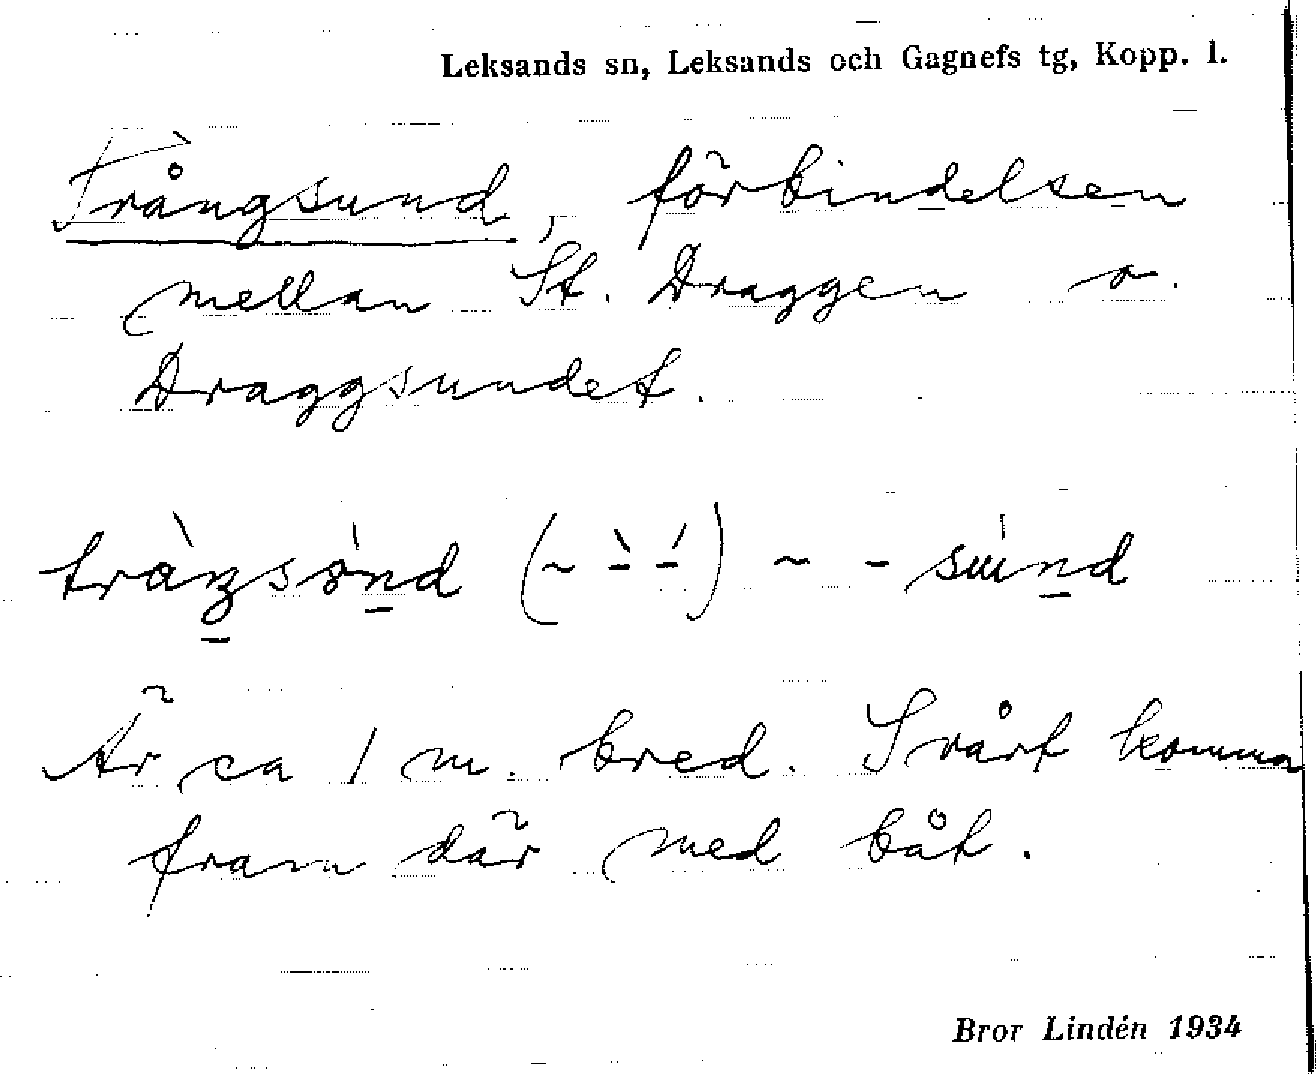 Leksands sn, Leksands och Gagnefs tg, Kopp. l.
Trångsund, förbindelsen
mellan St. Draggen o.
Draggsundet.
Är ca 1 m. bred. Svårt komma
fram där med båt.
Bror Lindén 1934